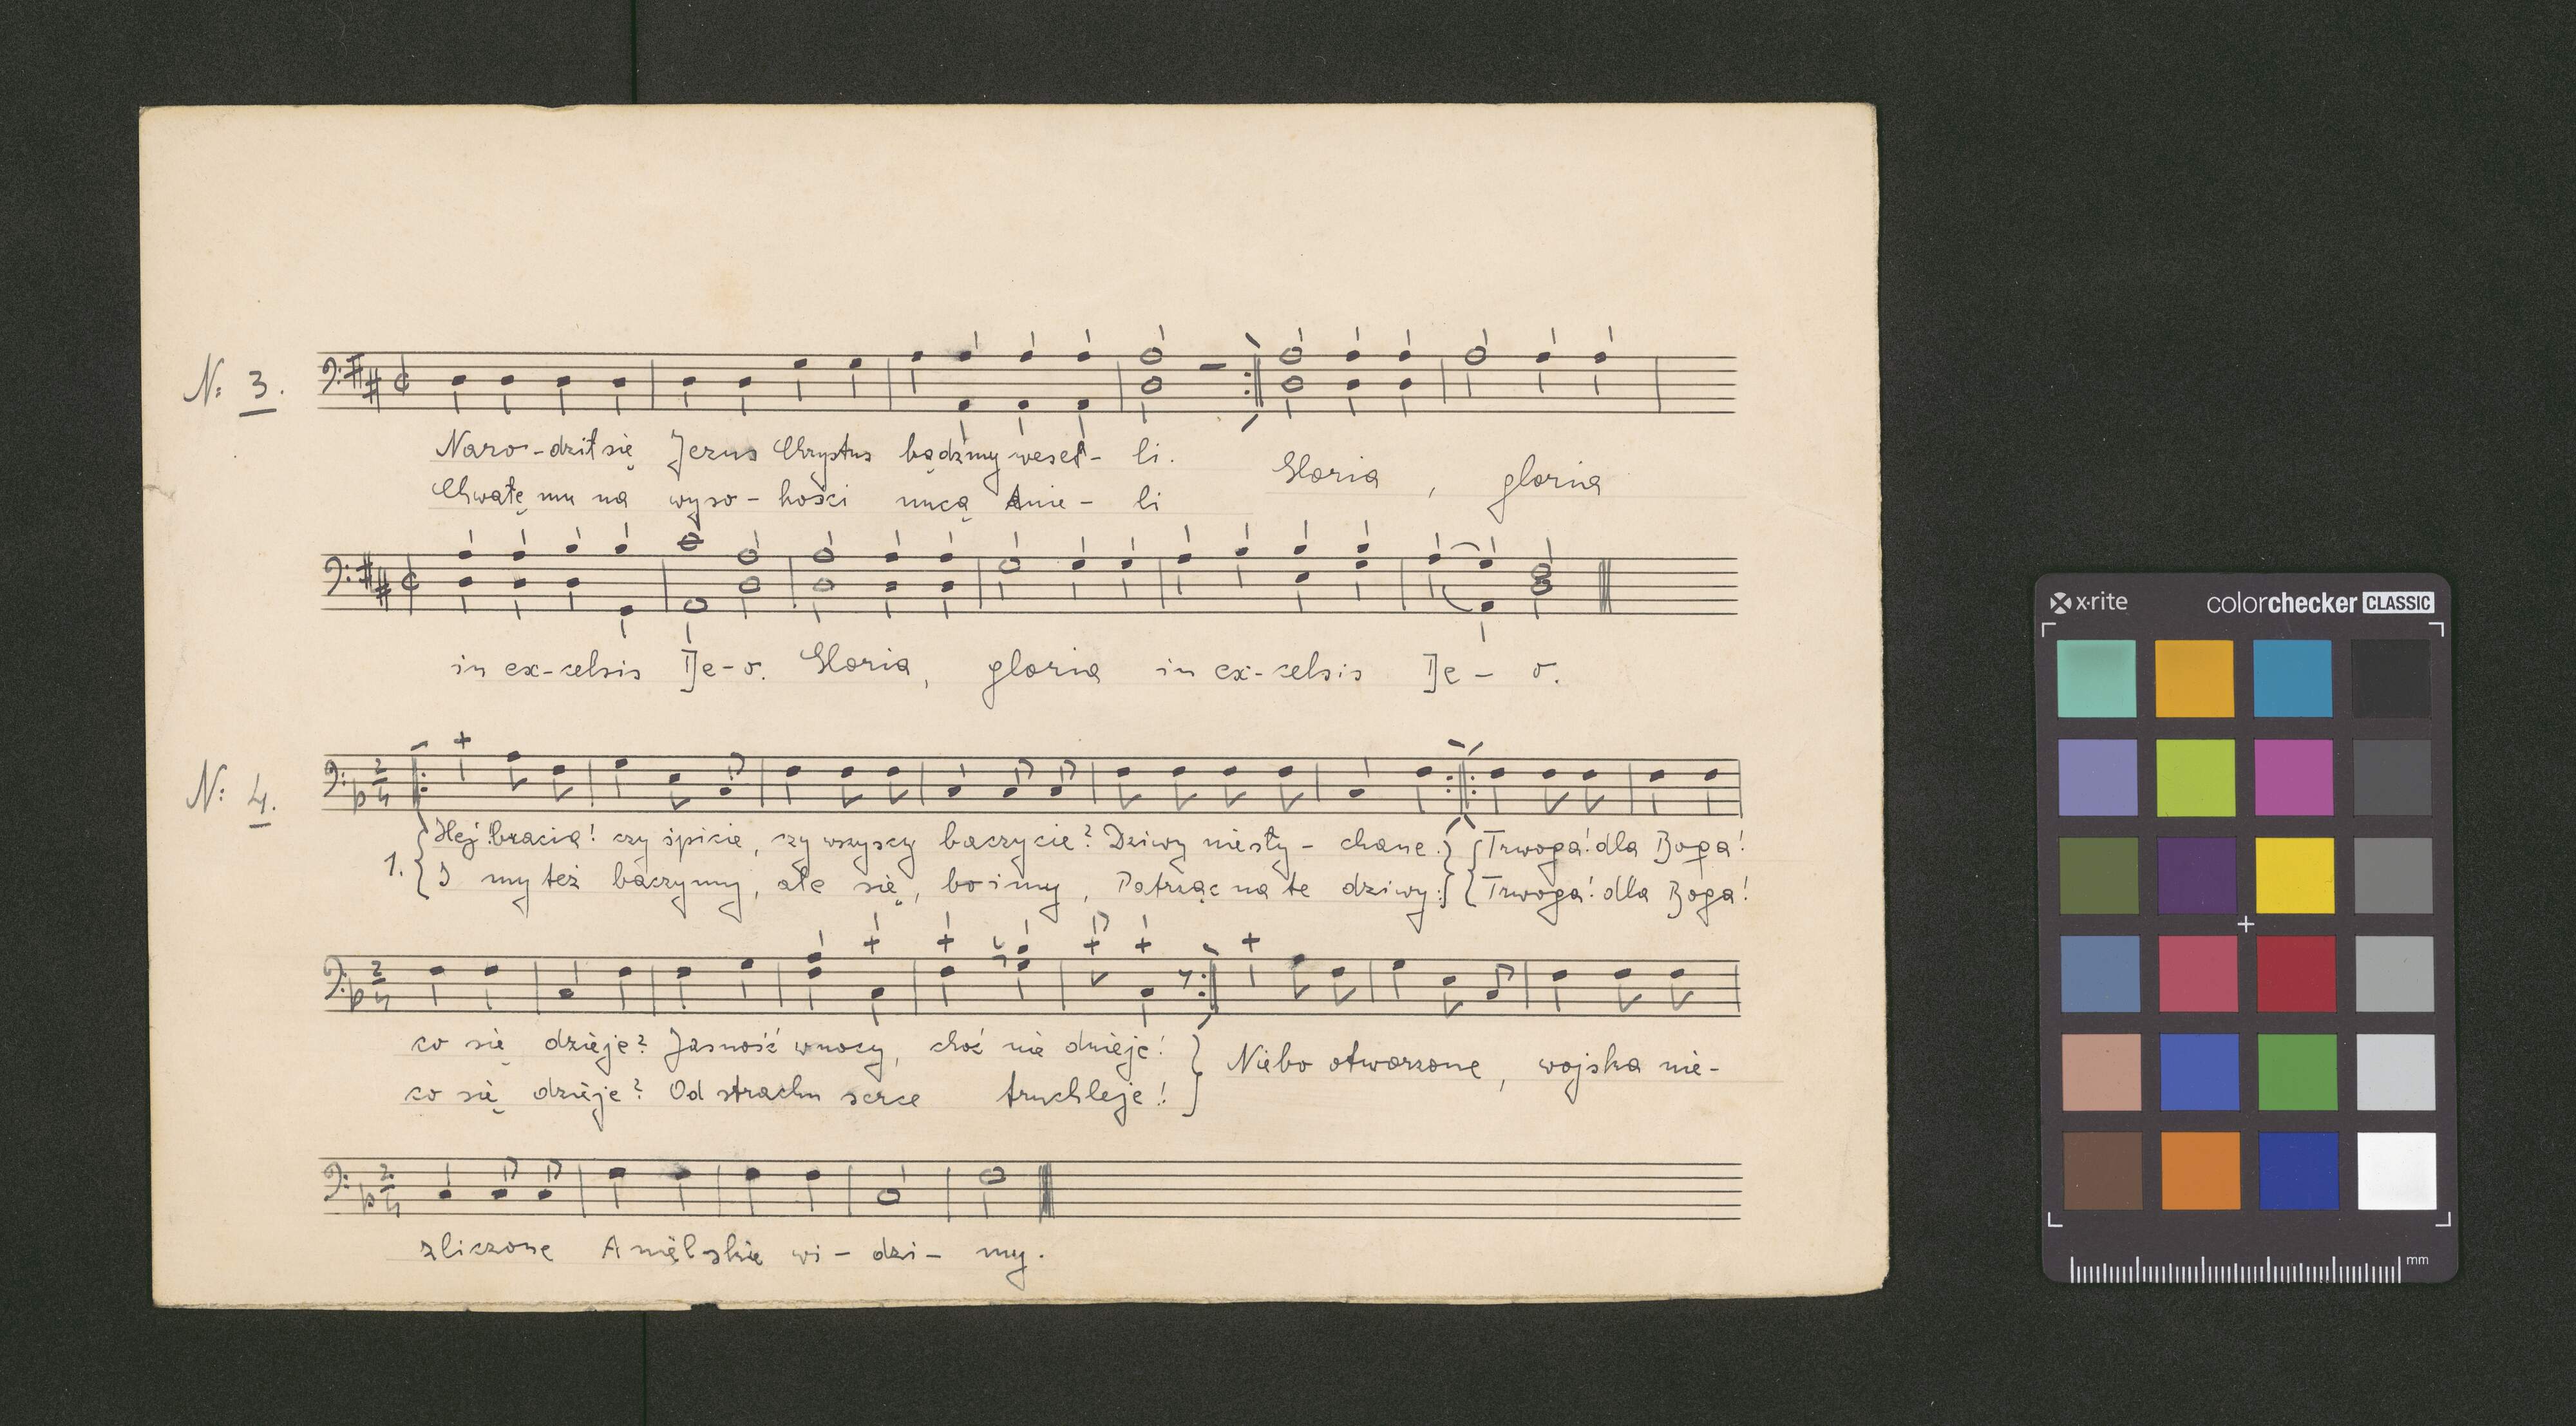 N: 3.
Naro-dził się Jezus Chrystus bądźmy weseł- li.
Chwałę mu na wyso-kości nucą Anie- li
Gloria, gloria
in ex-celsis De-o. Gloria, gloria in ex-celsis De- o.
N: 4.
1. Hej! bracia! czy śpicie, czy wszyscy baczycie? Dziwy niesły- chane:
I my też baczymy, ale się, boimy, Patrząc na te dziwy:
Trwoga! dla Boga!
Trwoga! dla Boga!
co się dzieje? Jasność w nocy, choć nie dnieje!
co się dzieje? Od strachu serce truchleje!
Niebo otworzone, wojska nie-
zliczone Anielskie wi- dzi- my.
x·rite
colorchecker CLASSIC
mm